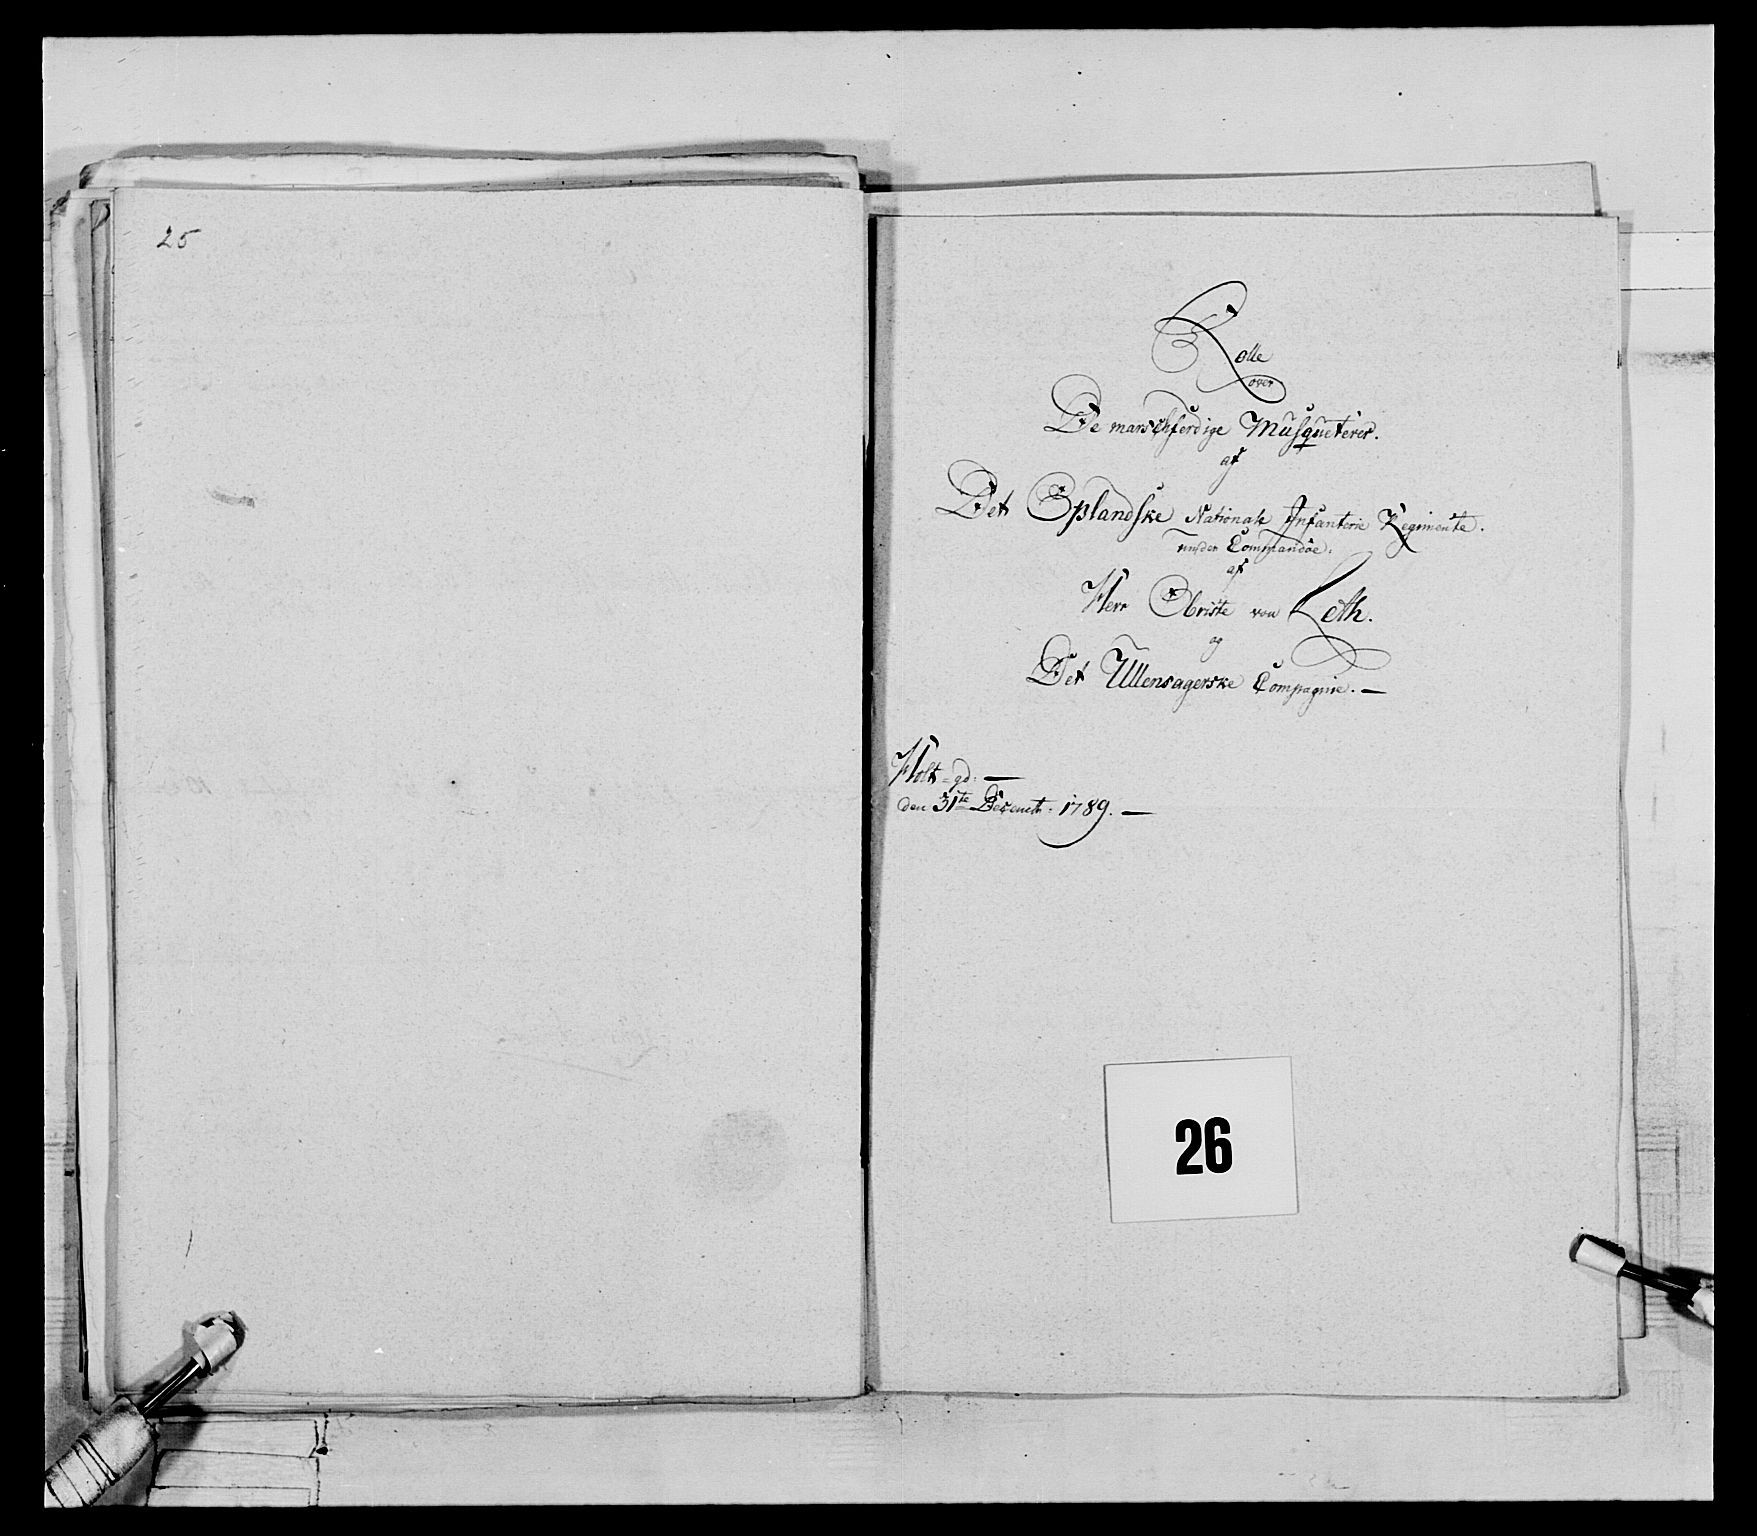 25
Rolle
over
De marschferdige Musqueterer.
af
Det Oplandske Nationale Infanterie Regimente.
under Commandoe.
af
Herr Obriste von Leth.
og
Det Ullensagerske Compagnie. —
Holt=gd: —
den 31te Decembr: 1789. —
26